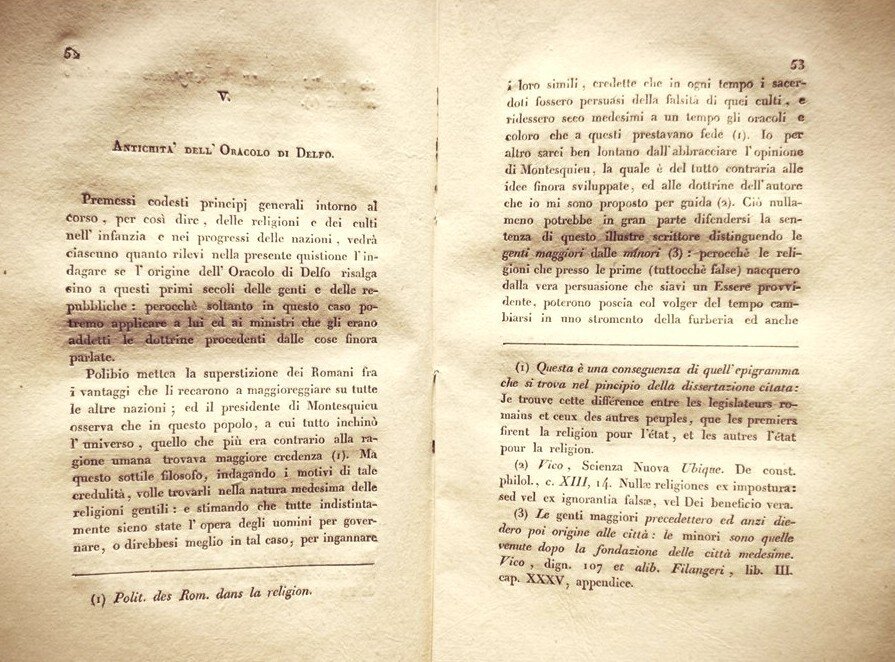 52
V.
Antichita' dell'Oracolo di Delfo.
Premessi codesti principj generali intorno al
corso, per così dire, delle religioni e dei culti
nell' infanzia e nei progressi delle nazioni, vedrà
ciascuno quanto rilevi nella presente quistione l'in-
dagare se l'origine dell'Oracolo di Delfo risalga
sino a questi primi secoli delle genti e delle re-
pubbliche: perocchè soltanto in questo caso po-
tremo applicare a lui ed ai ministri che gli erano
addetti le dottrine procedenti dalle cose finora
parlate.
Polibio mettea la superstizione dei Romani fra
i vantaggi che li recarono a maggioreggiare su tutte
le altre nazioni; ed il presidente di Montesquieu
osserva che in questo popolo, a cui tutto inchinò
l'universo, quello che più era contrario alla ra-
gione umana trovava maggiore credenza (1). Ma
questo sottile filosofo, indagando i motivi di tale
credulità, volle trovarli nella natura medesima delle
religioni gentili: e stimando che tutte indistinta-
mente sieno state l'opera degli uomini per gover-
nare, o direbbesi meglio in tal caso, per ingannare
(1) Polit. des Rom. dans la religion.
53
i loro simili, credette che in ogni tempo i sacer-
doti fossero persuasi della falsità di quei culti, e
ridessero seco medesimi a un tempo gli oracoli e
coloro che a questi prestavano fede (1). Io per
altro sarei ben lontano dall'abbracciare l'opinione
di Montesquieu, la quale è del tutto contraria alle
idee finora sviluppate, ed alle dottrine dell'autore
che io mi sono proposto per guida (2). Ciò nulla-
meno potrebbe in gran parte difendersi la sen-
tenza di questo illustre scrittore distinguendo le
genti maggiori dalle minori (3): perocchè le reli-
gioni che presso le prime (tuttocchè false) nacquero
dalla vera persuasione che siavi un Essere provvi-
dente, poterono poscia col volger del tempo cam-
biarsi in uno stromento della furberia ed anche
(1) Questa è una conseguenza di quell'epigramma
che si trova nel pincipio della dissertazione citata:
Je trouve cette différence entre les legislateurs ro-
mains et ceux des autres peuples, que les premiers
firent la religion pour l'état, et les autres l'état
pour la religion.
(2) Vico, Scienza Nuova Ubique. De const.
philol., c. XIII, 14. Nullæ religiones ex impostura:
sed vel ex ignorantia falsæ, vel Dei beneficio vera.
(3) Le genti maggiori precedettero ed anzi die-
dero poi origine alle città: le minori sono quelle
venute dopo la fondazione delle città medesime.
Vico, dign. 107 et alib. Filangeri, lib. III.
cap. XXXV, appendice.